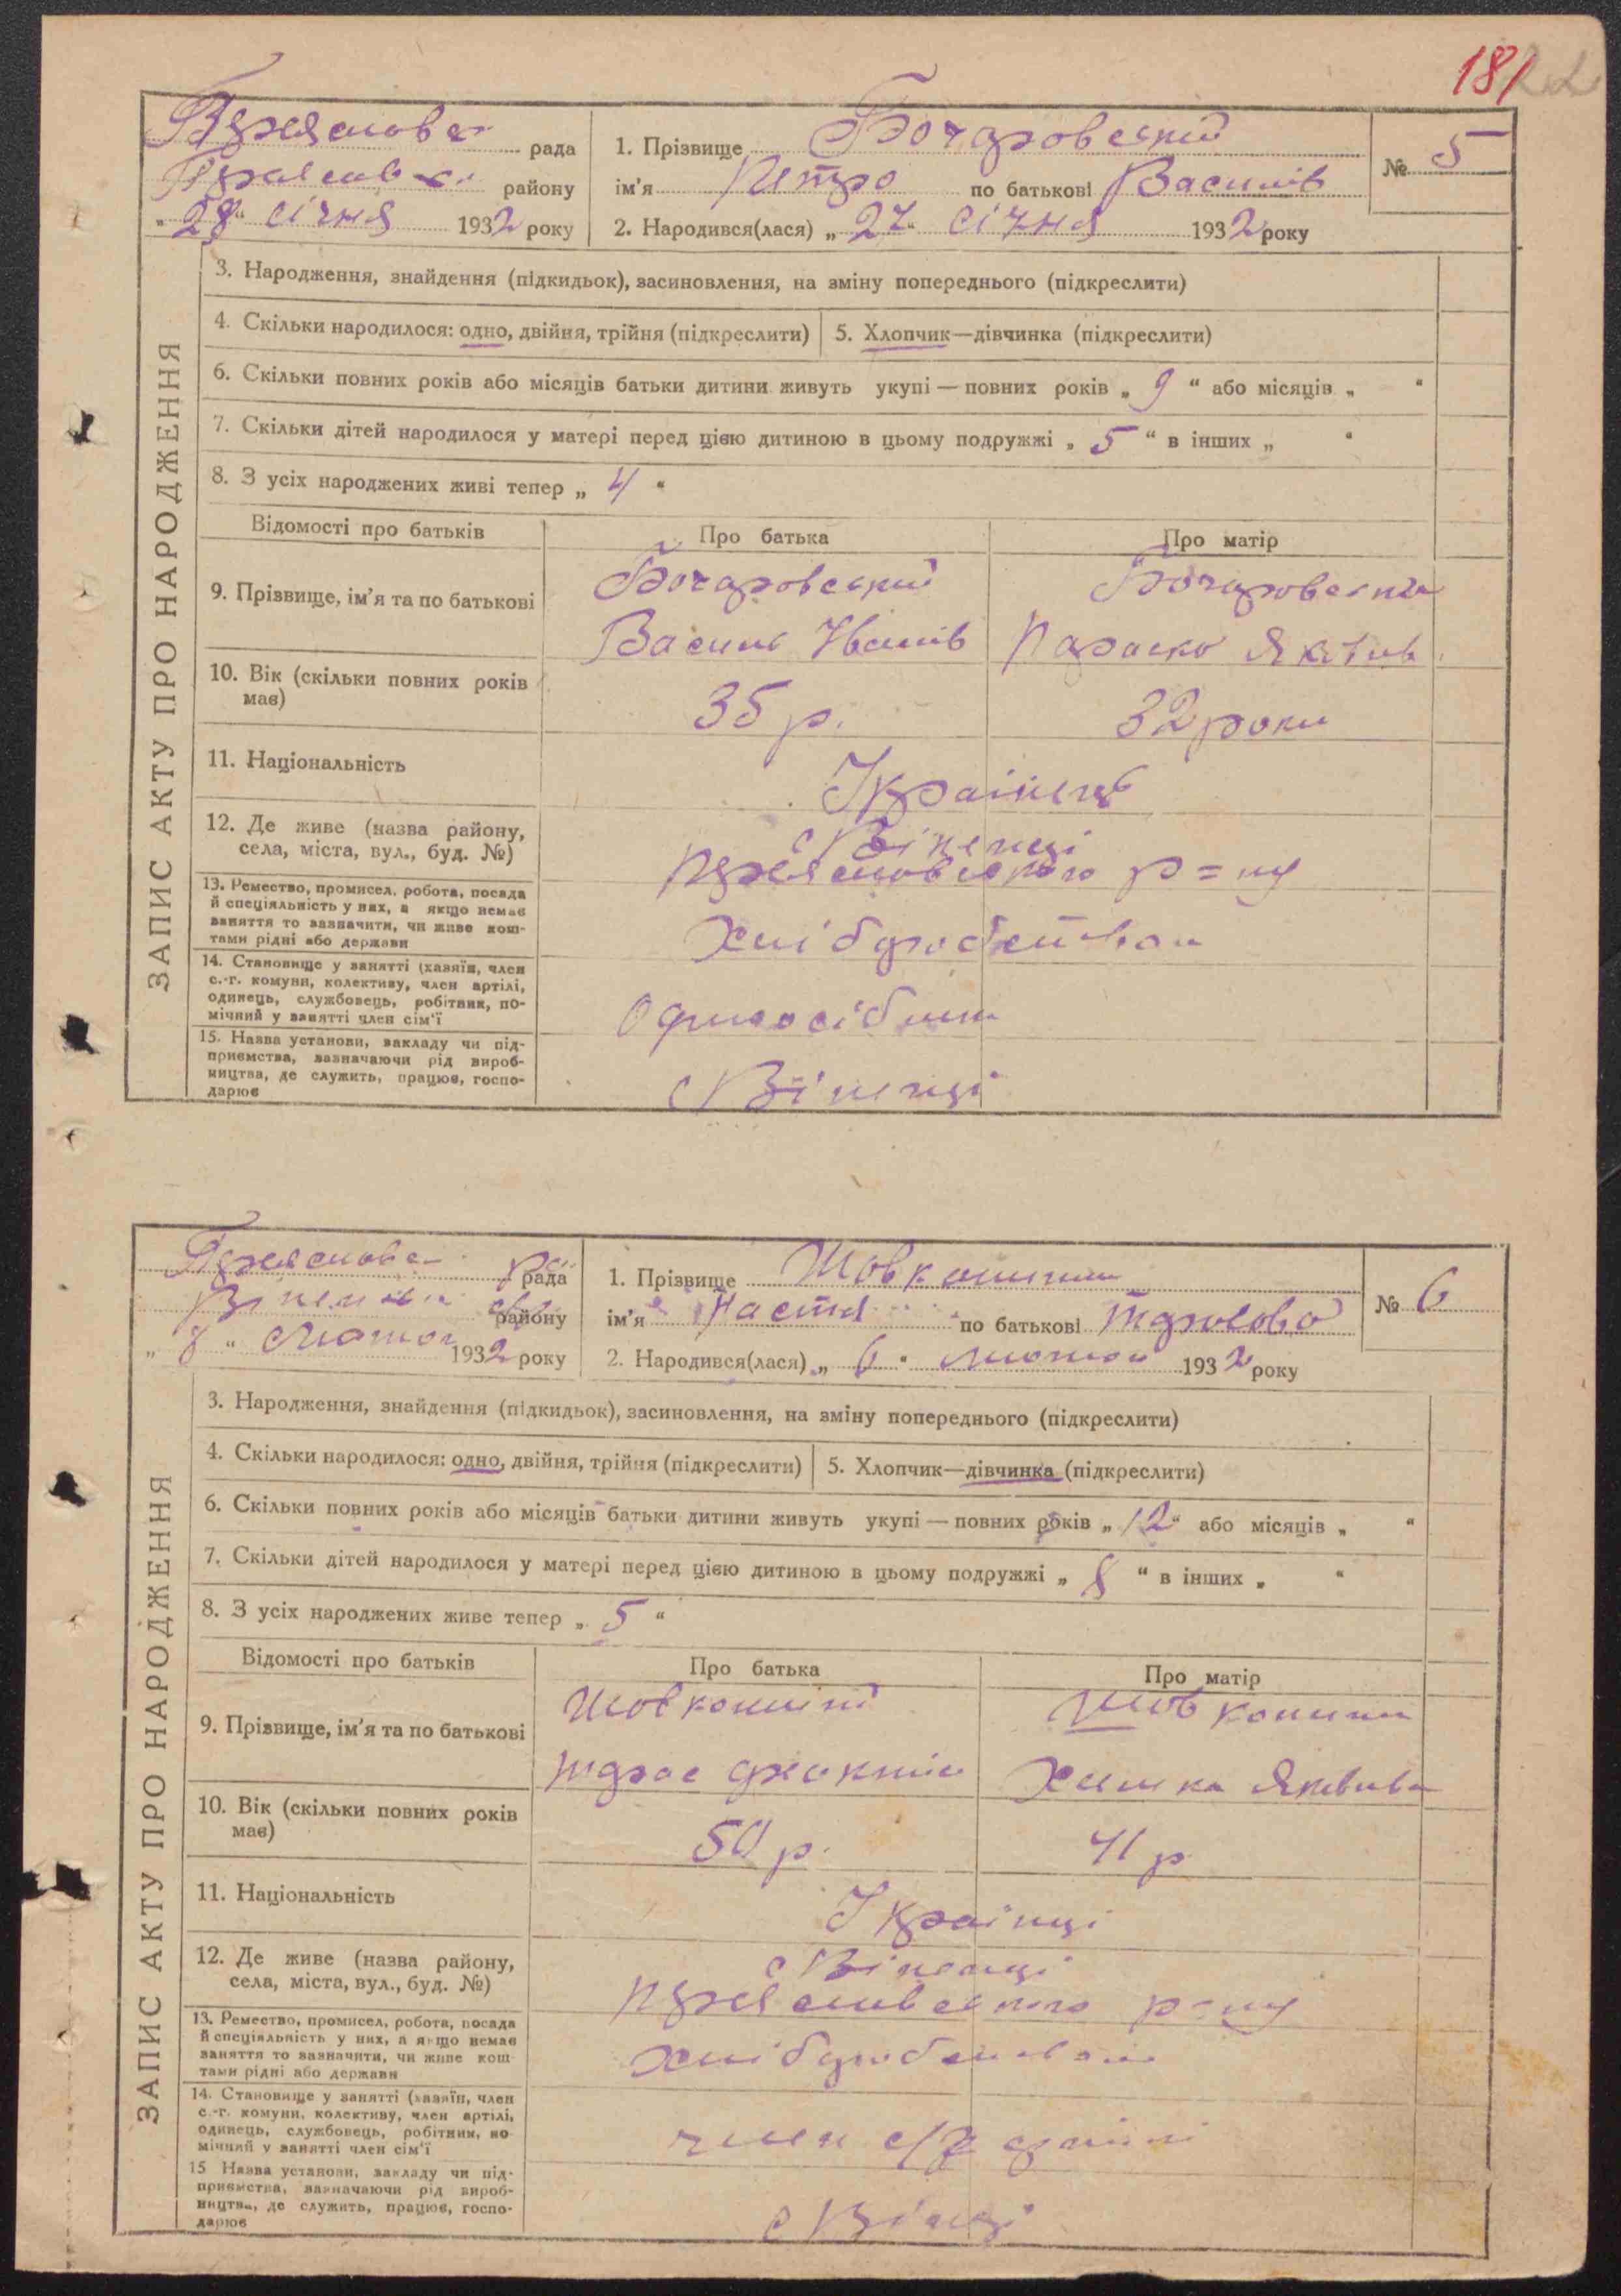 181
рада
району
„28“ січня 1932 року
1. Прізвище Бочаровский
ім'я Петро по батькові Василів
2. Народився(лася) „27“ січня 1932 року
№ 5
ЗАПИС АКТУ ПРО НАРОДЖЕННЯ
3. Народження, знайдення (підкидьок), засиновлення, на зміну попереднього (підкреслити)
4. Скільки народилося: одно, двійня, трійня (підкреслити) 5. Хлопчик—дівчинка (підкреслити)
6. Скільки повних років або місяців батьки дитини живуть укупі — повних років „ 9 “ або місяців „ “
7. Скільки дітей народилося у матері перед цією дитиною в цьому подружжі „ 5 “ в інших „ “
8. З усіх народжених живі тепер „ 4 “
Відомості про батьків Про батька Про матір
9. Прізвище, ім'я та по батькові
Бочаровский
Василь Іванів
Параска
10. Вік (скільки повних років
має)
35 р. 32 роки
11. Національність
Українець
12. Де живе (назва району,
села, міста, вул., буд. №)
с Віненці
р=ну
13. Ремество, промисел, робота, посада
й спеціяльність у них, а якщо немає
заняття то зазначити, чи живе кош-
тами рідні або держави
Хліборобством
14. Становище у занятті (хазяїн, член
с.-г. комуни, колективу, член артілі,
одинець, службовець, робітник, по-
мічний у занятті член сім'ї
Одноосібник
15. Назва установи, закладу чи під-
приємства, зазначаючи рід вироб-
ництва, де служить, працює, госпо-
дарює
с Віненці
рада
району
„8“ Лютого 1932 року
1. Прізвище
ім'я Настя по батькові Тарасова
2. Народився(лася) „6“ лютого 1932 року
№ 6
ЗАПИС АКТУ ПРО НАРОДЖЕННЯ
3. Народження, знайдення (підкидьок), засиновлення, на зміну попереднього (підкреслити)
4. Скільки народилося: одно, двійня, трійня (підкреслити) 5. Хлопчик—дівчинка (підкреслити)
6. Скільки повних років або місяців батьки дитини живуть укупі — повних років „ 12 “ або місяців „ “
7. Скільки дітей народилося у матері перед цією дитиною в цьому подружжі „ 8 “ в інших „ “
8. З усіх народжених живе тепер „ 5 “
Відомості про батьків Про батька Про матір
9. Прізвище, ім'я та по батькові
Тарас
10. Вік (скільки повних років
має)
50 р. 41 р
11. Національність
Українці
12. Де живе (назва району,
села, міста, вул., буд. №)
с Віненці
р=ну
13. Ремество, промисел, робота, посада
й спеціяльність у них, а якщо немає
заняття то зазначити, чи живе кош-
тами рідні або держави
хліборобством
14. Становище у занятті (хазяїн, член
с.-г. комуни, колективу, член артілі,
одинець, службовець, робітник, по-
мічний у занятті член сім'ї
член с/г артілі
15 Назва установи, закладу чи під-
приємства, зазначаючи рід вироб-
ництва, де служить, працює, госпо-
дарює